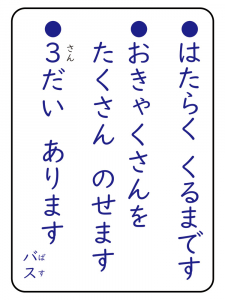 ●はたらく くるまです
●おきゃくさんを
たくさん のせます
●3だい あります
さん
バス
ばす